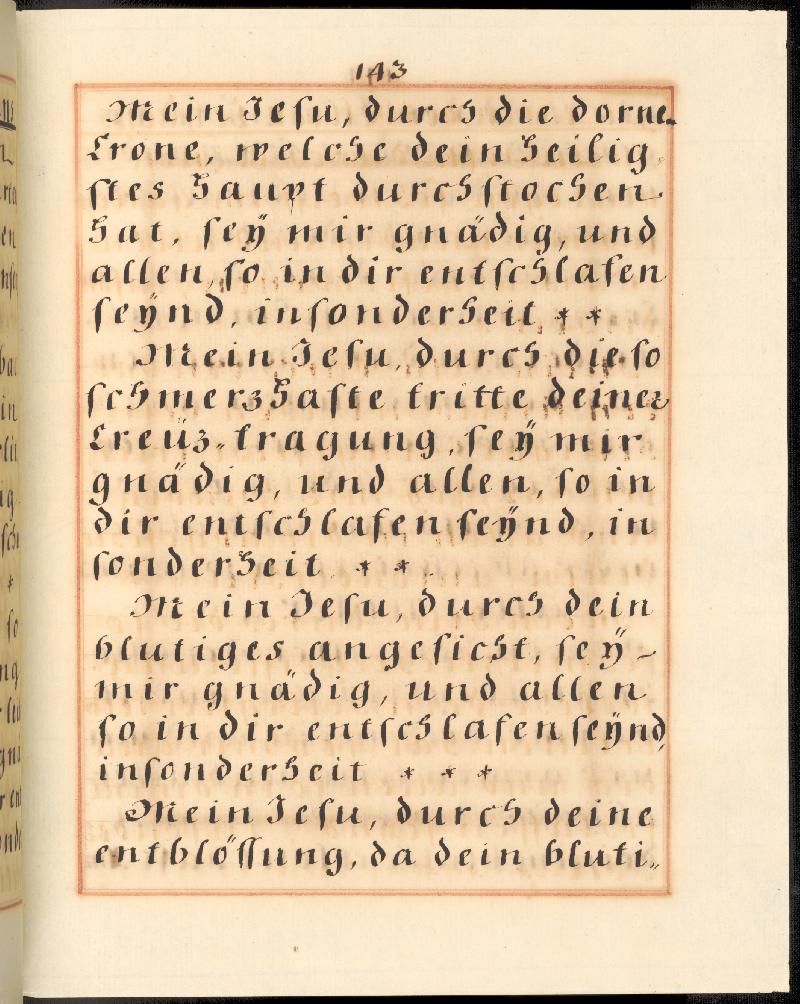 143
Mein Jesu, durch die dorne-
Crone, welche dein heilig
stes haupt durchstochen
hat, seÿ mir gnädig, und
allen, so in dir entschlafen
seÿnd, insonderheit * *
Mein Jesu, durch die so
schmerzhafte tritte deiner
Creüz-tragung, seÿ mir
gnädig, und allen, so in
dir entschlafen seÿnd, in
sonderheit * *
Mein Jesu, durch dein
blutiges angesicht, seÿ -
mir gnädig, und allen
so in dir entschlafen seÿnd,
insonderheit * * *
Mein Jesu, durch deine
entblössung, da dein bluti„